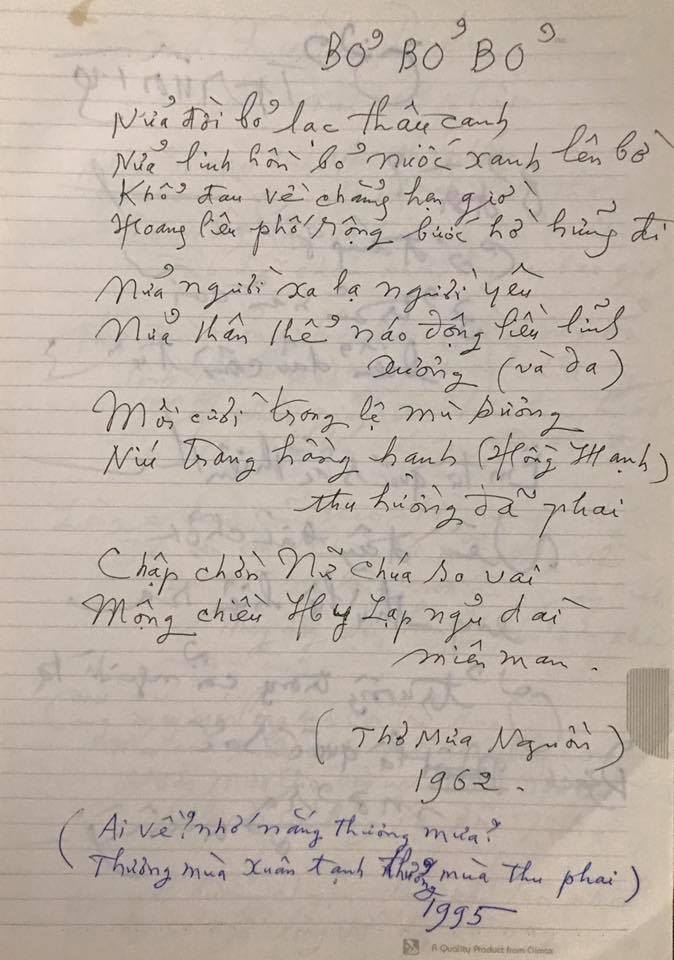 BỞ BỞ BỞ
Nửa đời bở lạc thâu canh
Nửa linh hồn bở nước xanh lên bờ
Khổ đau về chẳng hẹn giờ
Hoang liêu phố rộng bước hờ hững đi
Nửa người xa lạ người yêu
Nửa thân thể náo động liền linh
xương (và da)
Môi cười trong lệ mù sương
Níu trang hồng hanh (Hồng Hạnh)
thu hường đã phai
Chập chờn Nữ chúa so vai
Mộng chiều Hy Lạp ngủ dài
miên man.
(Thơ Mưa Nguồn)
1962.
(Ai về? nhớ nắng thương mưa?
Thương mùa xuân tạnh thương mùa thu phai)
1995
A Quality Product from Climax